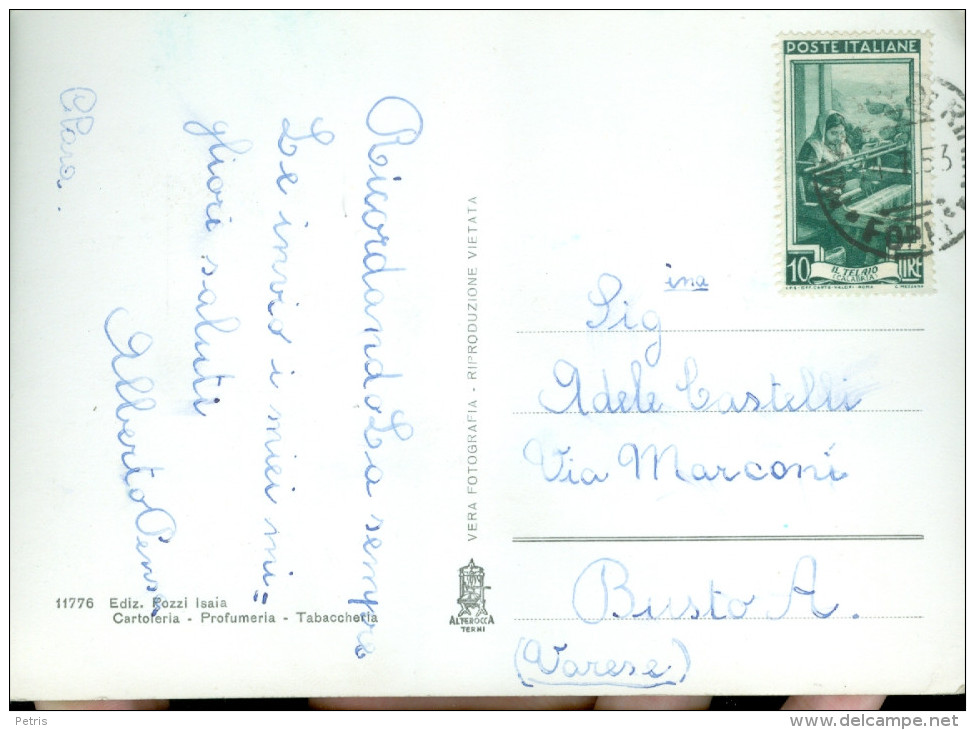 RicordandoLa sempre
Le invio i miei mi=
gliori saluti
Alberto Pensa
Clara.
11776 Ediz. Pozzi Isaia
Cartoleria - Profumeria - Tabaccheria
VERA FOTOGRAFIA - RIPRODUZIONE VIETATA
ALTEROCCA
TERNI
POSTE ITALIANE
IL TELAIO
(CALABRIA)
10 LIRE
53
FORLI
Sig ina
Adele Castelli
Via Marconi
Busto A.
(Varese)
Petris
www.delcampe.net